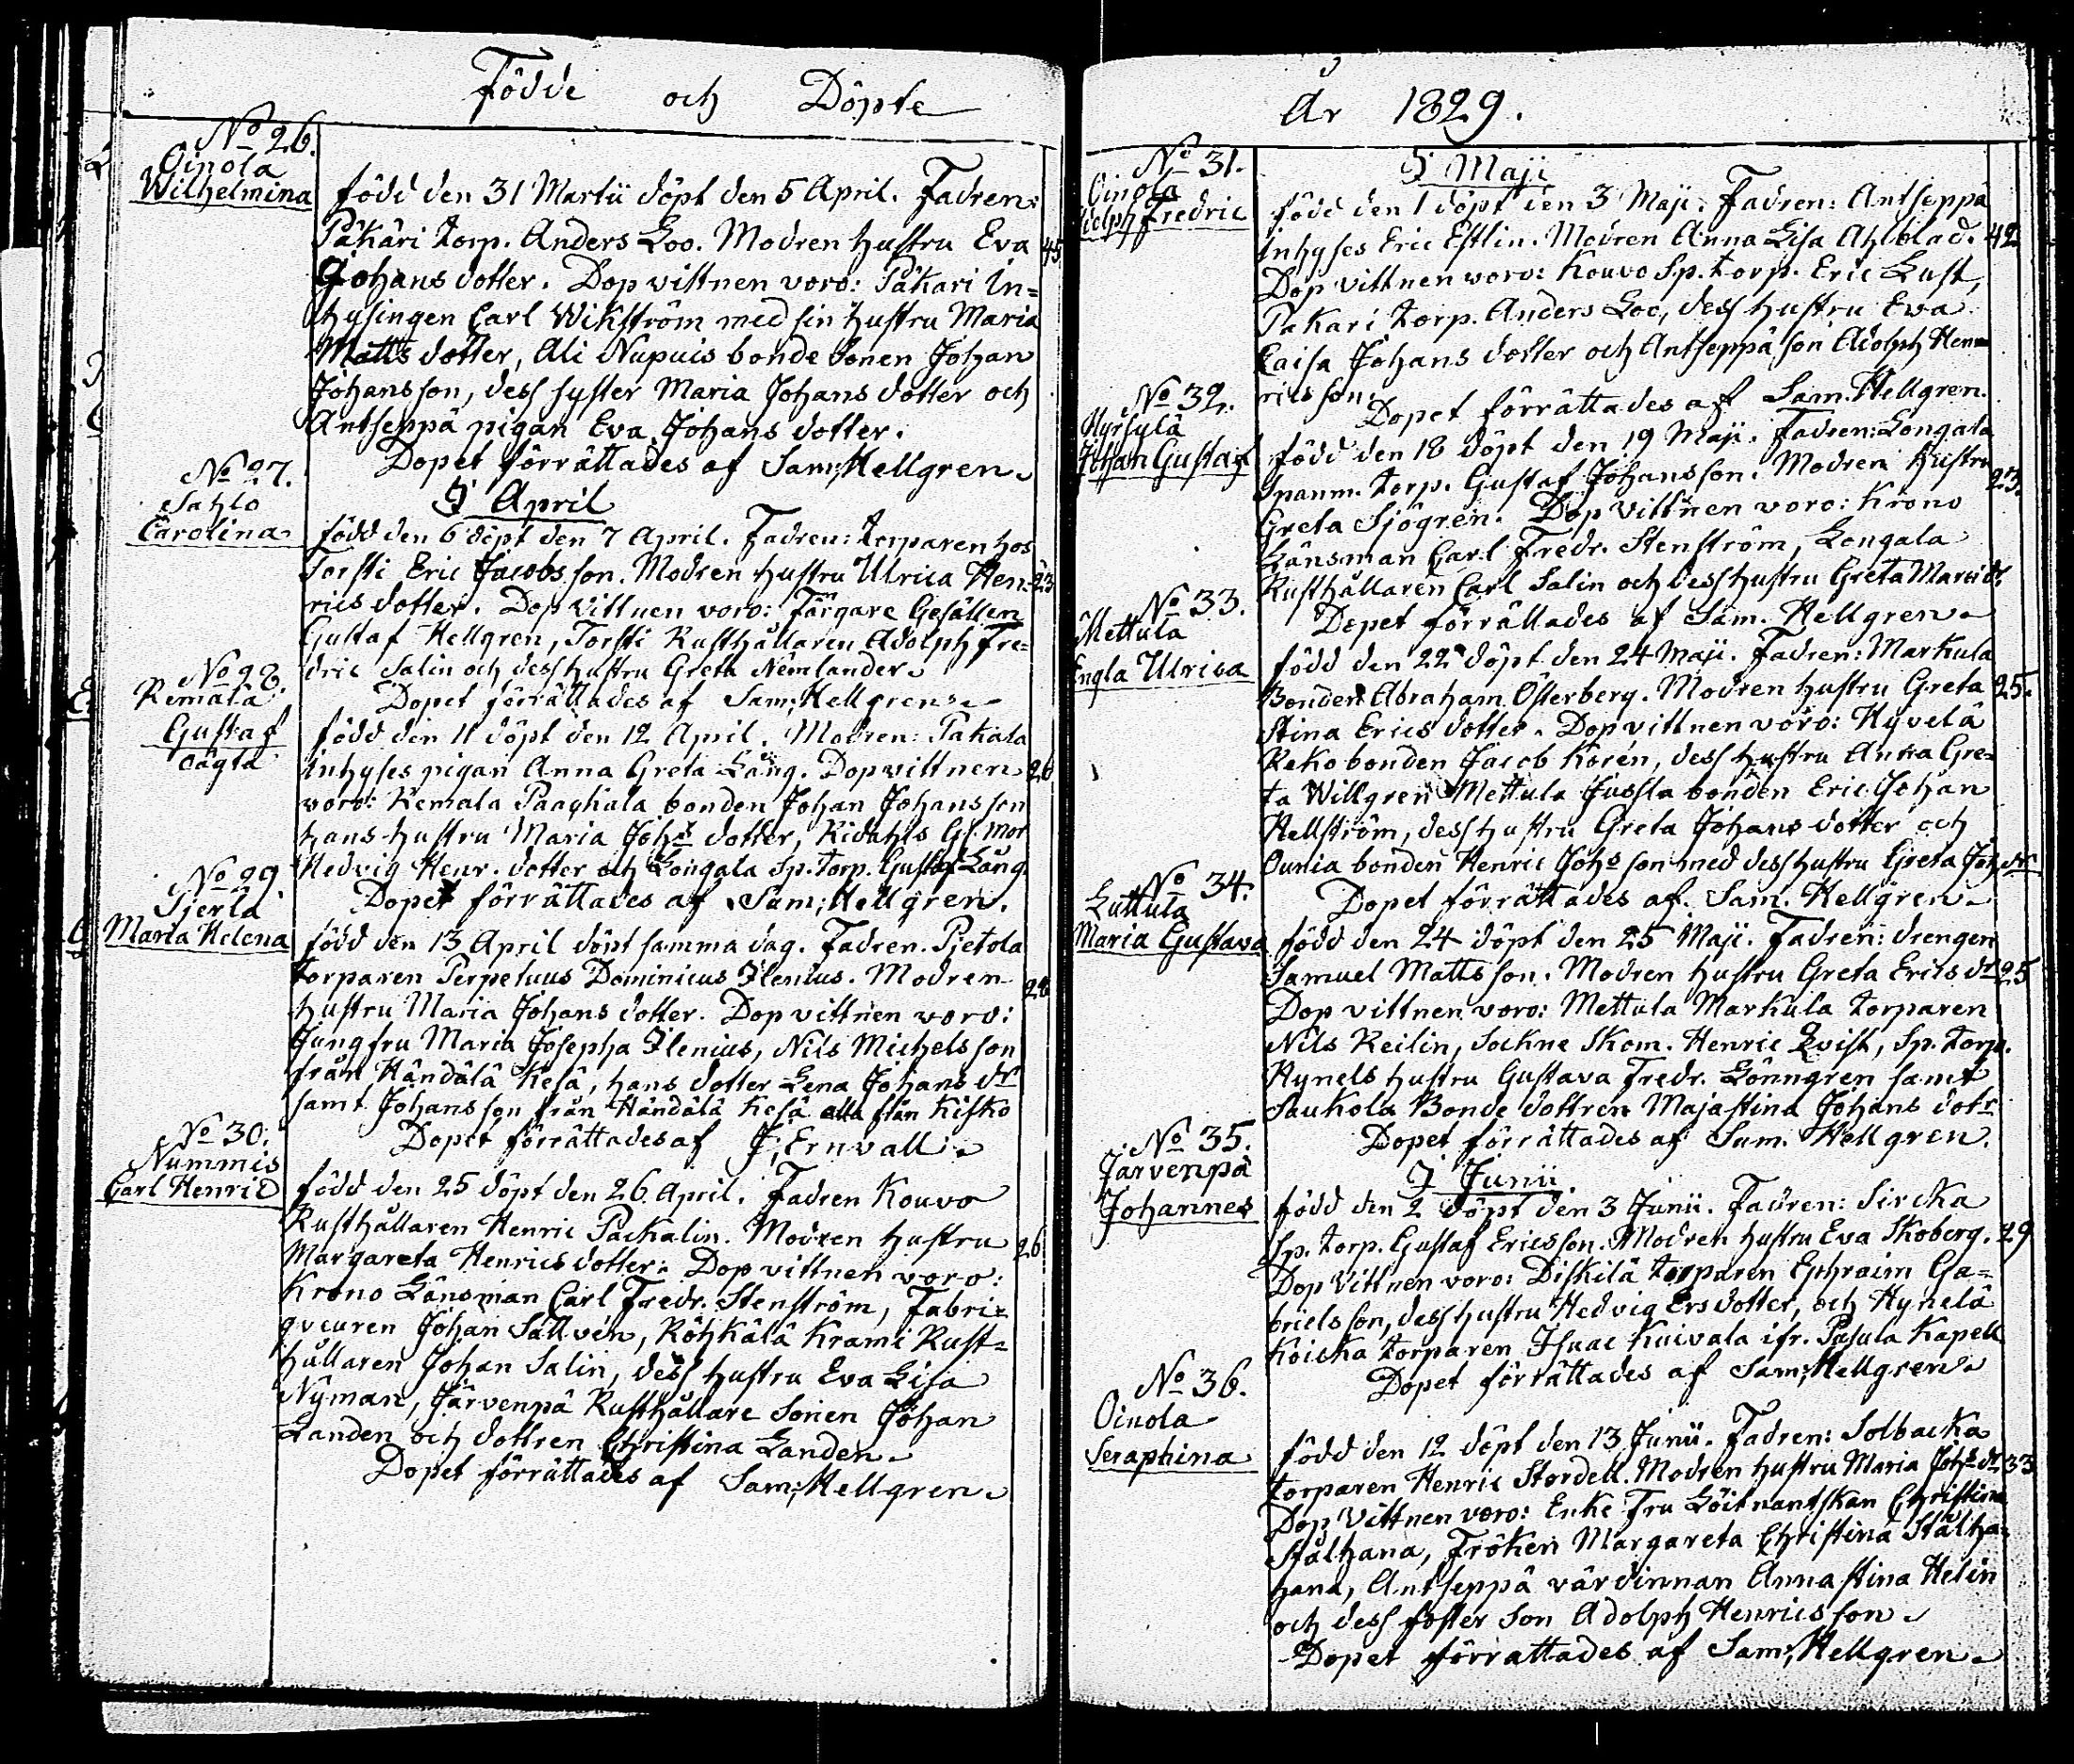 Födde och Döpte
No 26.
Oinola
Wilhelmina
född den 31 Martii döpt den 5 April. Fadren:
Päkäri torp. Anders Loo. Modren hustru Eva 45
Johans dotter. Dop vittnen voro: Päkari In=
hysingen Carl Wikström med sin hustru Maria
Matts dotter, Ali Nupuis bonde sonen Johan
Johansson, dess syster Maria Johans dotter och
Antseppä pigan Eva Johans dotter.
Dopet förrättades af Sam: Hellgren.
No 27.
Sahlo
Carolina
I April
född den 6 döpt den 7 April. Fadren: torparen hos
Torsti Eric Jacobs son. Modren hustru Ulrica Hen- 23
rics dotter. Dop Vittnen voro: Färgare Gesällen
Gustaf Hellgren, Torsti Rusthållaren Adolph Fre=
dric Salin och dess hustru Greta Nemlander.
Dopet förrättades af Sam: Hellgren.
No 28.
Remälä
Gustaf
oägta
född den 11 döpt den 12 April. Modren: Pakala
inhyses pigan Anna Greta Lång. Dopvittnen 26
voro: Remala Paaykala bonden Johan Johansson
hans hustru Maria Johs dotter, Kiduhls Gl. mor
Hedvig Henr. dotter och Longala Sp. torp. Gustaf Lång.
Dopet förrättades af Sam: Hellgren.
No 29
Sjerlä
Maria Helena
född den 13 April döpt samma dag. Fadren. Pietola
torparen Perpetuus Dominicus Ilenius. Modren 28
hustru Maria Johans dotter. Dop vittnen voro:
Jungfru Maria Josepha Ilenius, Nils Michelsson
från Händälä Kesä, hans dotter Lena Johans dr
samt Johansson från Händälä Kesä alla från Kisko
Dopet förrättades af J: Ernvall.
No 30.
Nummis
Carl Henric
född den 25 döpt den 26 April. Fadren Kouvo
Rusthållaren Henric Packalin. Modren hustru 26
Margareta Henrics dotter. Dop vittnen voro:
Krono Länsman Carl Fredr. Stenström, Fabri=
queuren Johan Sallvén, Röhkälä Krami Rust=
hållaren Johan Salin, dess hustru Eva Lisa
Nyman, Järvenpä Rusthållare sonen Johan
Landen och dottren Christina Landen.
Dopet förrättades af Sam: Hellgren.
År 1829.
No 31.
Oinola
Fredric
I Maji
född den 1 döpt den 3 Maji. Fadren: Antseppä
inhyses Eric Estlin. Modren Anna Lisa Ahlblad. 42
Dop vittnen voro: Kouvo Sp. torp. Eric Lust,
Päkari torp. Anders Loo, dess hustru Ewa
Caisa Johans dotter och Antseppä son Adolph Hen=
rics son.
Dopet förrättades af Sam. Hellgren.
No 32.
Hyrsylä
Johan Gustaf
född den 18 döpt den 19 Maji. Fadren: Longala
Spanm. torp. Gustaf Johansson. Modren hustru 23.
Greta Sjögren. Dop Vittnen voro: Krono
Länsman Carl Fredr. Stenström, Longala
Rusthållaren Carl Salin och dess hustru Greta dr
Dopet förrättades af Sam. Hellgren.
No 33.
Mettula
Engla Ulrica
född den 22 döpt den 24 Maji. Fadren: Markula
Bonden Abraham Österberg. Modren hustru Greta 25.
Stina Erics dotter. Dop vittnen voro: Hyvelä
Reko bonden Jacob Korén, dess hustru Anna Gre=
ta Willgren Mettula Jussla bonden Eric Johan
Hellström, dess hustru Greta Johans dotter och
Ounia bonden Henric Johs son med dess hustru Greta Joh. dr
Dopet förrättades af Sam. Hellgren.
No 34.
Luttula
Maria Gustava
född den 24 döpt den 25 Maji. Fadren: drengen
Samuel Matts son. Modren hustru Greta Erics dr 25
Dop vittnen voro: Mettula Markula torparen
Nils Reilin, Sockne Skom. Henric Qvist, Sp. torp.
Hynels hustru Gustava Fredr. Lönngren samt
Saukola Bonde dottren Majastina Johans dotr
Dopet förrättades af Sam. Hellgren.
No 35.
Järvenpä
Johannes
I Junii.
född den 2 döpt den 3 Junii. Fadren: Sircka
Sp. torp. Gustaf Ericsson. Modren hustru Eva Skoberg. 29
Dop Vittnen voro: Diskilä torparen Ephraim Ga=
briels son, dess hustru Hedvig Ersdotter, och Hynelä
Koicka torparen Isaac Kuivala ifr. Pusula Kapell
Dopet förrättades af Sam: Hellgren.
No 36.
Oinola
Seraphina
född den 12 döpt den 13 Junii. Fadren: Solbacka
torparen Henric Stordell. Modren hustru Maria Johs dr 33
Dop Vittnen voro: Enke Fru Löitnantskan Christina
Stålhana, Fröken Margareta Christina Stålha=
hana, Antseppä värdinnan Annastina Helin
och dess foster son Adolph Henrics son.
Dopet förrättades af Sam: Hellgren.